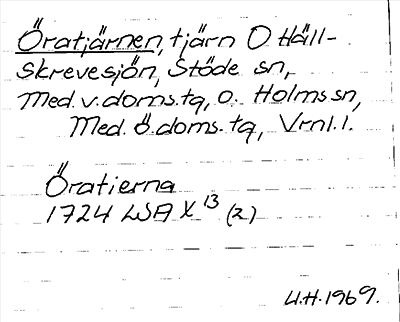 Öratjärnen, tjärn O Häll-
skrevesjön, Stöde sn,
Med. v. doms. tg, o. Holms sn,
Med. ö. doms. tg, Vrnl. l.
Öratierna
1724 LSA X 13 (2)
U.H. 1969.